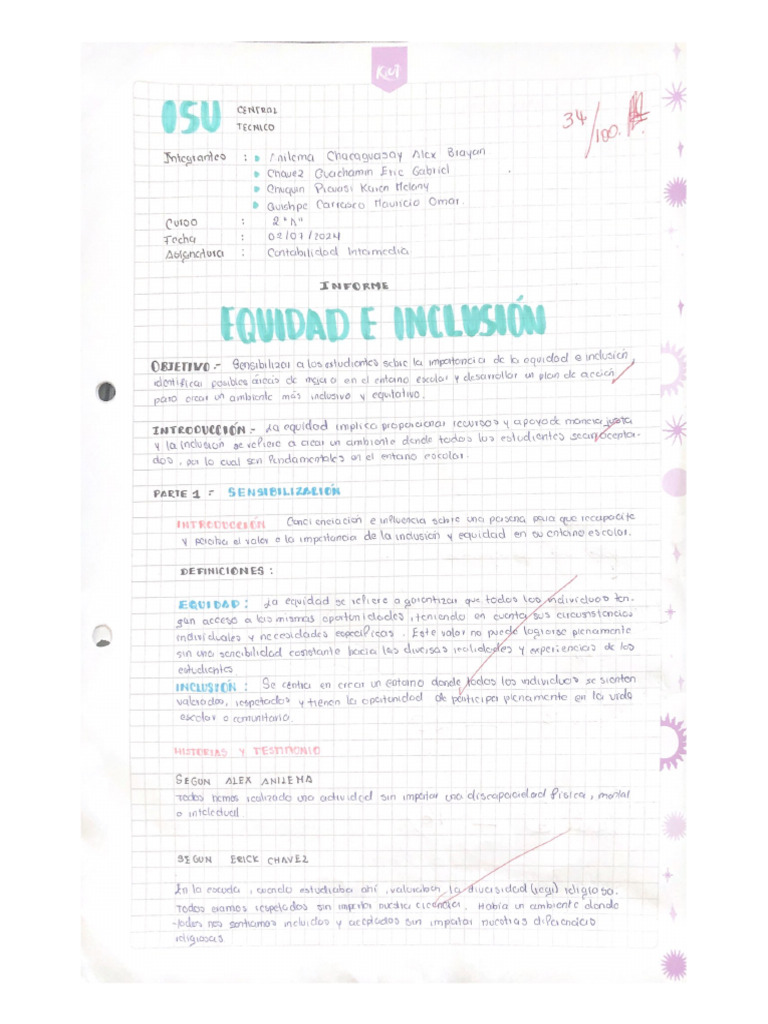 KM
OSU CENTRAL
TECNICO
34/100.
Integrantes : Anilema Chacaguasay Alex Brayan
Chavez Guachamin Eric Gabriel
Chuquin Pravasi Karen Melany
Quishpe Carrasco Mauricio Omar.
Curso : 2 "A"
Fecha : 02/07/2024
Asignatura : Contabilidad Intermedia
INFORME
EQUIDAD E INCLUSIÓN
OBJETIVO.- Sensibilizar a los estudiantes sobre la importancia de la equidad e inclusión,
identificar posibles áreas de mejora en el entorno escolar y desarrollar un plan de acción
para crear un ambiente más inclusivo y equitativo.
INTRODUCCIÓN.- La equidad implica proporcionar recursos y apoyo de manera justa
y la inclusión se refiere a crear un ambiente donde todos los estudiantes sean acepta-
dos, por lo cual son fundamentales en el entorno escolar.
PARTE 1 = SENSIBILIZACIÓN
INTRODUCCIÓN Concienciación e influencia sobre una persona para que recapacite
y perciba el valor o la importancia de la inclusión y equidad en su entorno escolar.
DEFINICIONES:
EQUIDAD: La equidad se refiere a garantizar que todos los individuos ten-
gan acceso a las mismas oportunidades, teniendo en cuenta sus circunstancias
individuales y necesidades específicas. Este valor no puede lograrse plenamente
sin una sensibilidad constante hacia las diversas realidades y experiencias de los
estudiantes
INCLUSIÓN: Se centra en crear un entorno donde todos los individuos se sientan
valorados, respetados y tienen la oportunidad de participar plenamente en la vida
escolar o comunitaria.
HISTORIAS Y TESTIMONIO
SEGUN ALEX ANILEMA
Todos hemos realizado una actividad sin importar una discapacidad física, mental
o intelectual.
SEGUN ERICK CHAVEZ
En la escuela, cuando estudiaba ahí, valoraban la diversidad religioso.
Todos eramos respetados sin importar nuestra creencia. Había un ambiente donde
todos nos sentíamos incluidos y aceptados sin importar nuestras diferencias
religiosas.